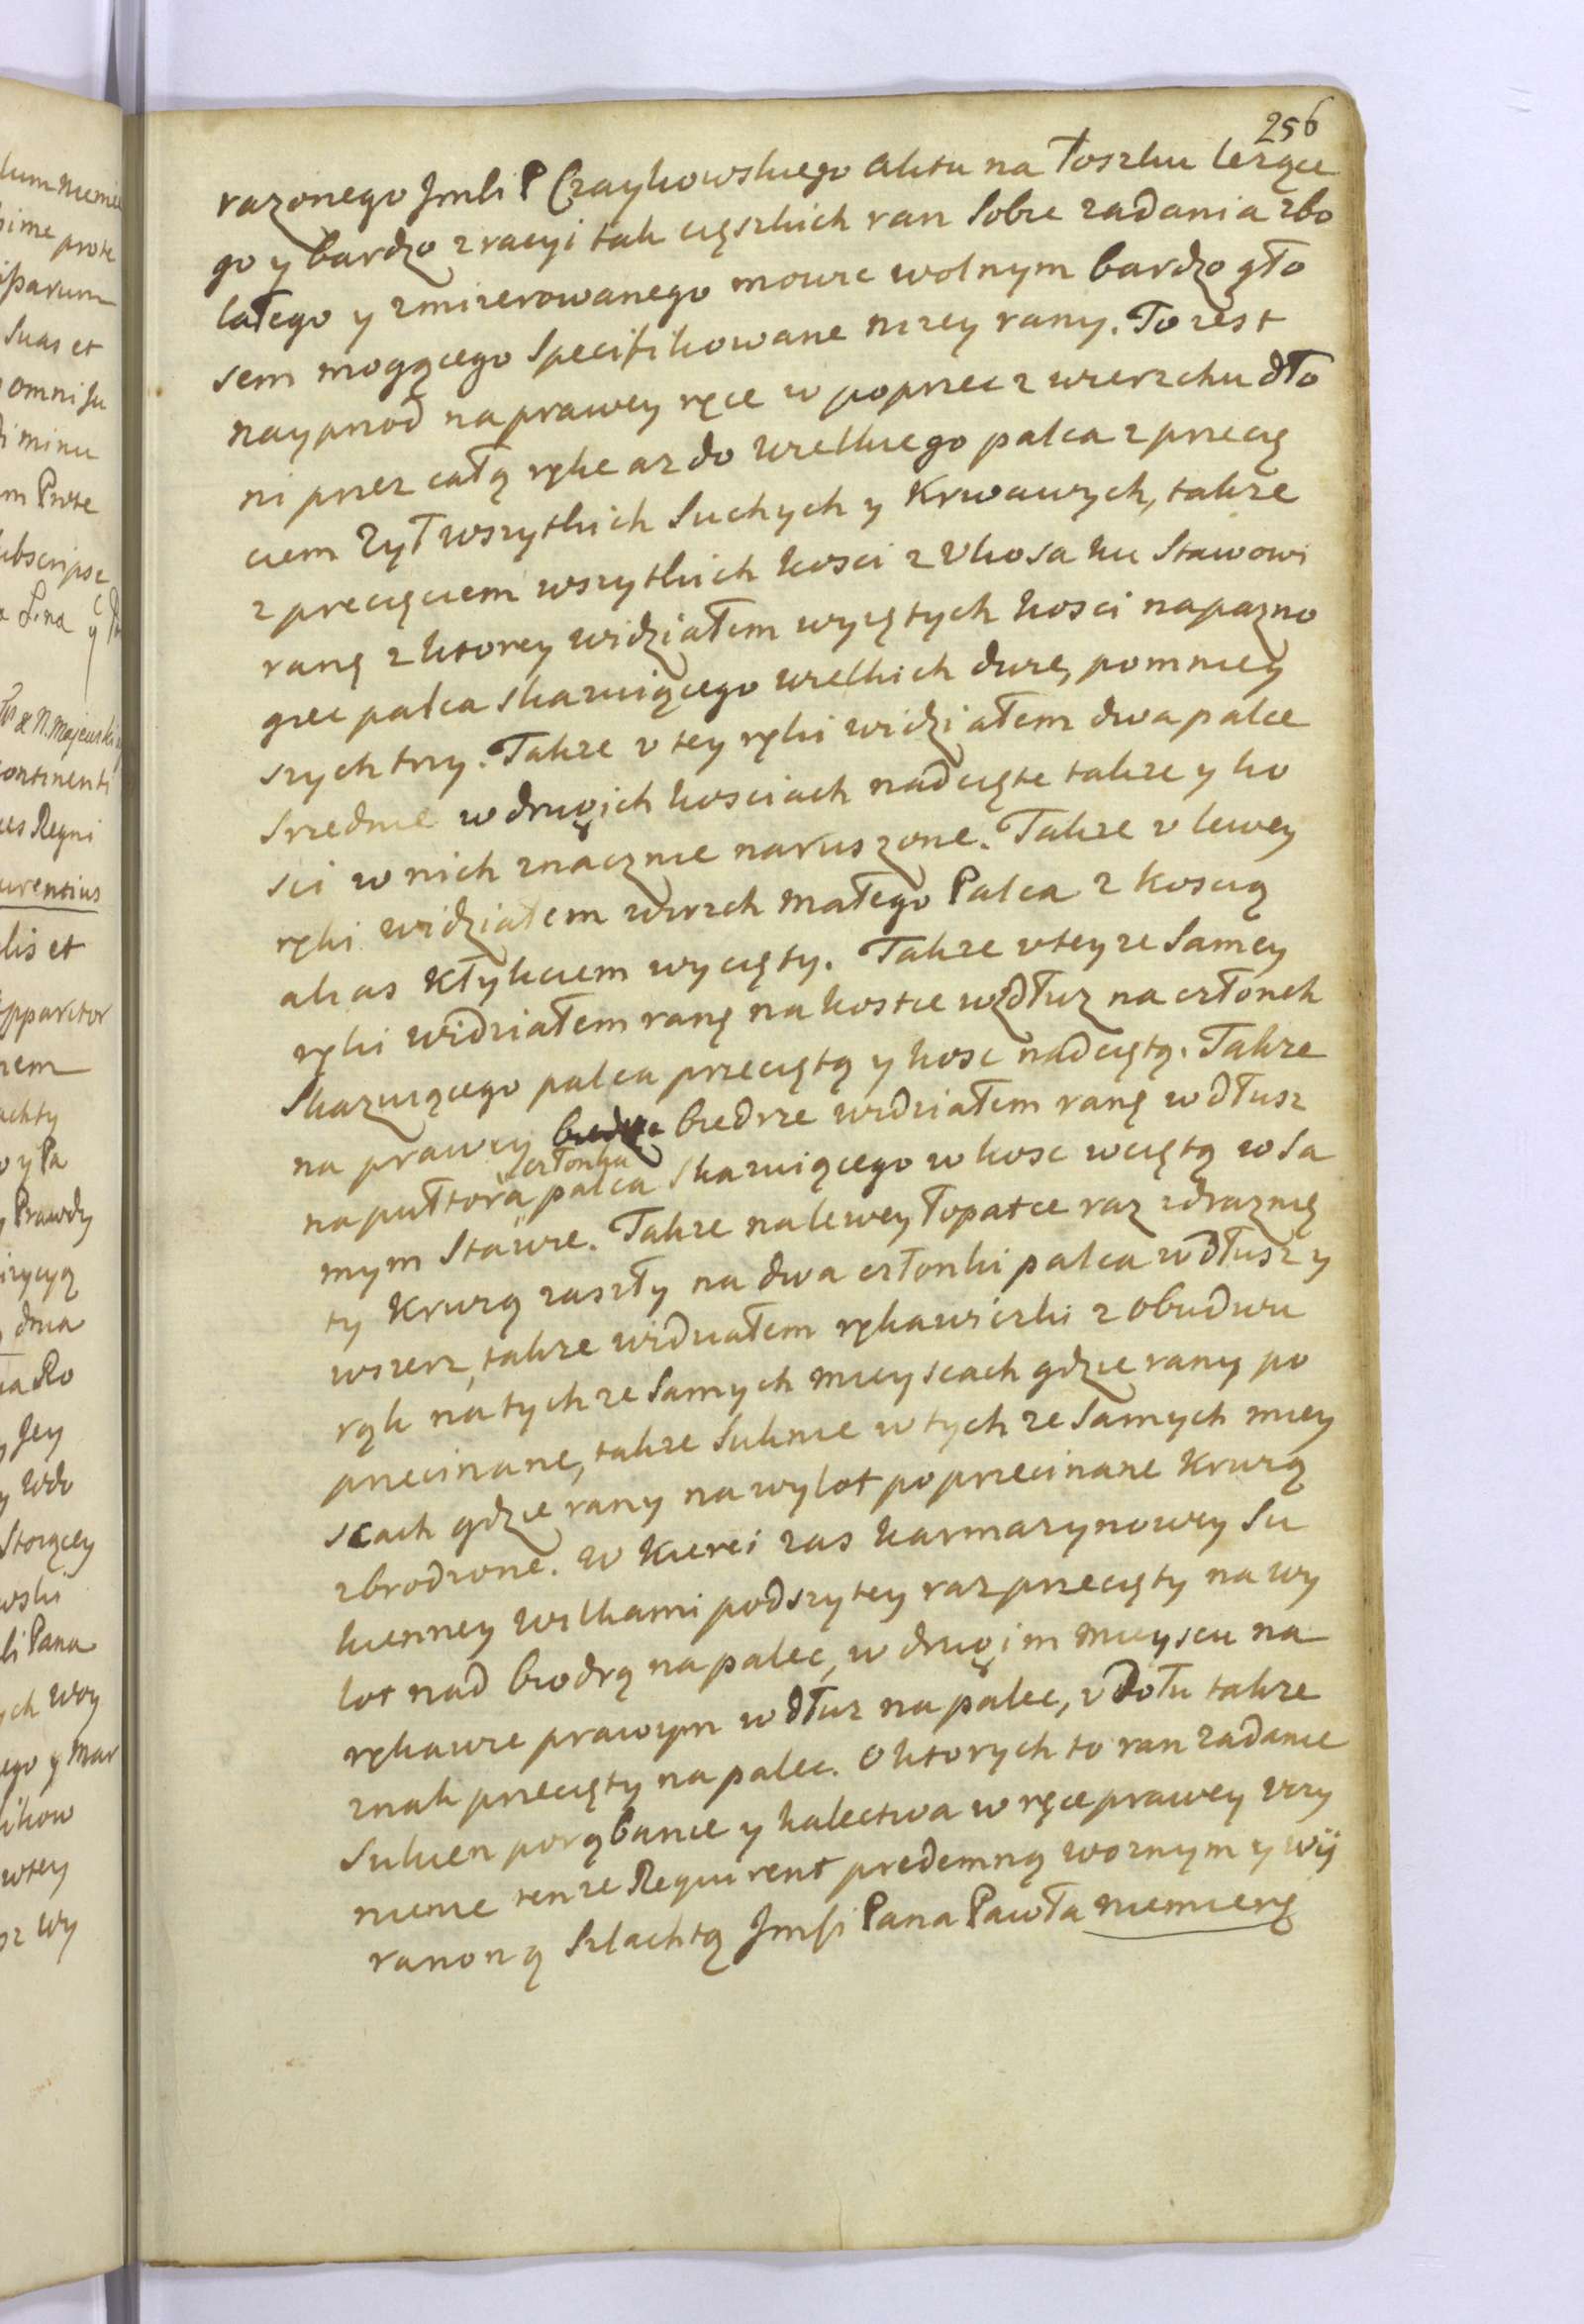 256
razonego Jmśi P Czaykowskiego aktu na Łoszku lezące
go y bardzo z racyi tak cięszkich ran Sobie zadania zbo
lałego y zmizerowanego mowić wolnym bardzo gło
sem mogącego Specifikowane nizey rany. To iest
nayprzod na prawey ręce w poprzec z wierzchu dło
ni przez całą rękę az do wielkiego palca z przecię
ciem Zył wszytkich Suchych y Krwawych, takze
z precięciem wszytkich kosci z Ukosa ku Stawowi
ranę z ktorey widziałem wyiętych kosci na pazno
grec palca skazuiącego wielkich dwie, pomniey
szych trzy. Takze v tey ręki widziałem dwa palce
Srzednie w drugich kosciach nadcięte takze y ko
sci w nich znacznie naruszone. Takze v lewey
ręki widziałem wirzch małego Palca z koscią
alias kłykciem wycięty. Takze v teyze Samey
ręki widziałem ranę na kostce wzdłuz na członek
Skazuiącego palca przeciętą y kosc nadciętą. Takze
na prawey biedrze biedrze widziałem ranę wdłusz
członka
na pułtora palca Skazuiącego w kosc wciętą w Sa
mym Stawie. Takze na lewey łopatce raz zdraznię
ty Krwią zaszły na dwa członki palca wdłusz y
wszerz, takze widziałem rękawiczki z obudwu
ręk na tychze Samych mieyscach gdzie rany po
precinane, takze Suknie w tychze Samych miey
scach gdzie rany na wylot poprzecinane Krwią
zbrodzone. w kierei zas karmazynowey Su
kienney wilkami podszytey raz przecięty na wy
lot nad biodrą na palec, w drugim mieyscu na
rękawie prawym wdłuz na palec, v dołu takze
znak przecięty na palec. O ktorych to ran zadanie
Sukien porąbanie y kalectwa w ręce prawey vczy
nienie tenze Requirent predemną woznym y wÿ
ranoną Szlachtą Jmśi Pana Pawła niemierę